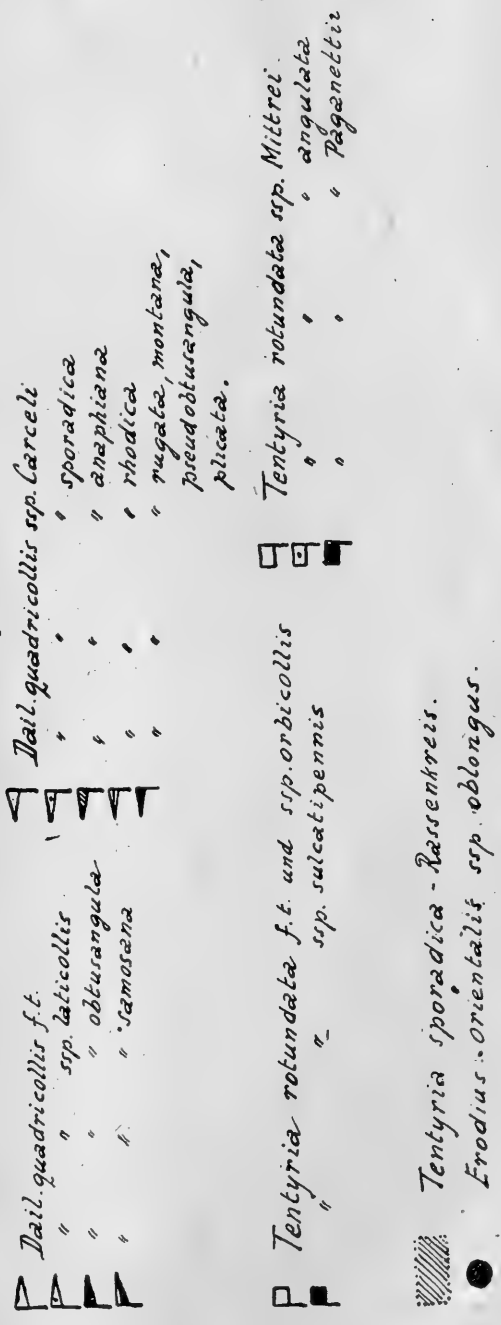 Dail. quadricollis f.t.
" " ssp. laticollis
" " " obtusangula
" " " samosana
Dail. quadricollis ssp. Carceli
" " " sporadica
" " " anaphiana
" " " rhodica
" " " rugata, montana,
pseudobtusangula,
plicata.
Tentyria rotundata f.t. und ssp. orbicollis
" " ssp. sulcatipennis
Tentyria rotundata ssp. Mittrei
" " " angulata
" " " Paganettii
Tentyria sporadica - Rassenkreis.
Erodius orientalis ssp. oblongus.